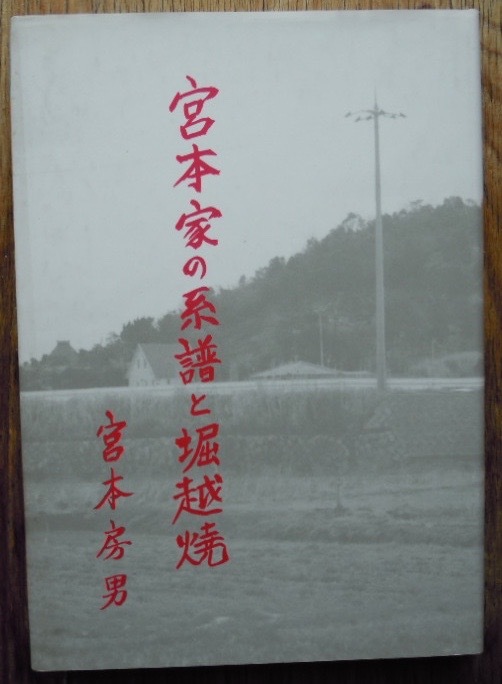 宮本家の系譜と堀越焼
宮本房男